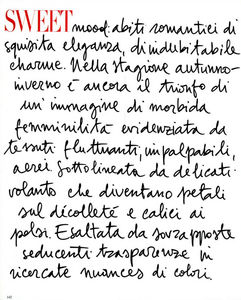 SWEET mood: abiti romantici di
squisita eleganza, di indubitabile
charme. Nella stagione autunno-
inverno è ancora il trionfo di
un immagine di morbida
femminilità evidenziata da
tessuti fluttuanti, impalpabili,
aerei. Sottolineata da delicati
volants che diventano petali
sul décolleté e calici ai
polsi. Esaltata da sovrapposte
seducenti trasparenze in
ricercate nuances di colori.